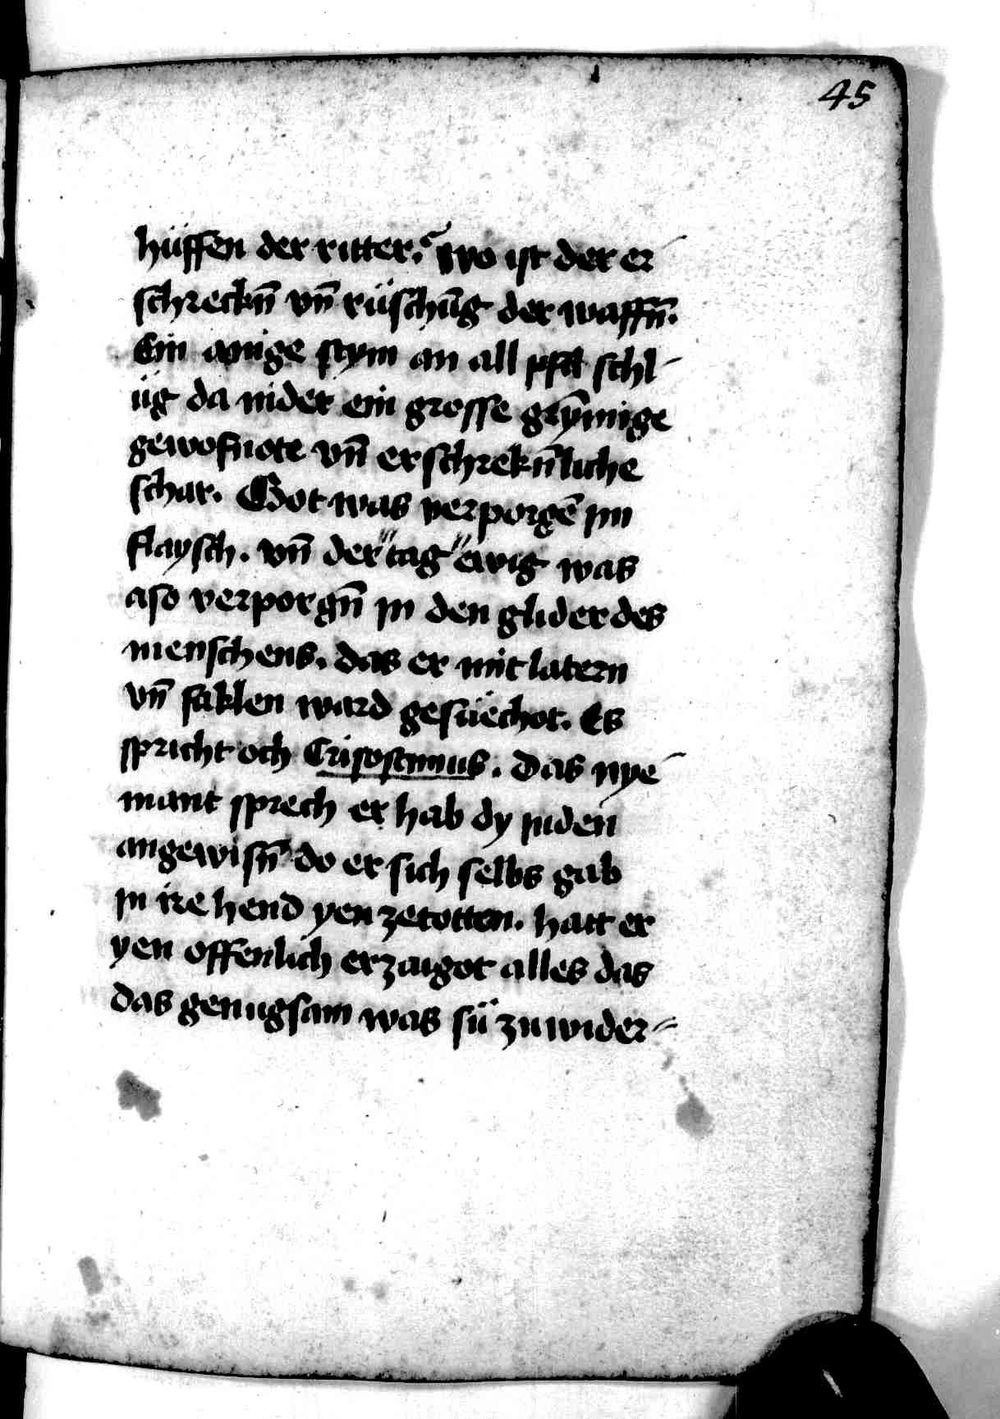 45
hüffen der ritter. Wo ist der er
schreckn̄ vn̄ rüschūg der waffn̄.
Ein ainige stym an all pfil schl
üg da nider ein grosse grȳmige
gewofnote vn̄ erschrekn̄liche
schar. Got was verporgē im
flaysch. vn̄ der "tag" ewig was
aso verporgn̄ in den glider des
menschens. das er mit latern
vn̄ faklen ward gesüechot. Es
spricht och Crisostimus. Das nye
mant sprech er hab dy juden
angewisn̄ do er sich selbs gab
in ire hend yen zetotten. hatt er
yen offenlich erzaigot alles das
das genugsam was sü zu wider